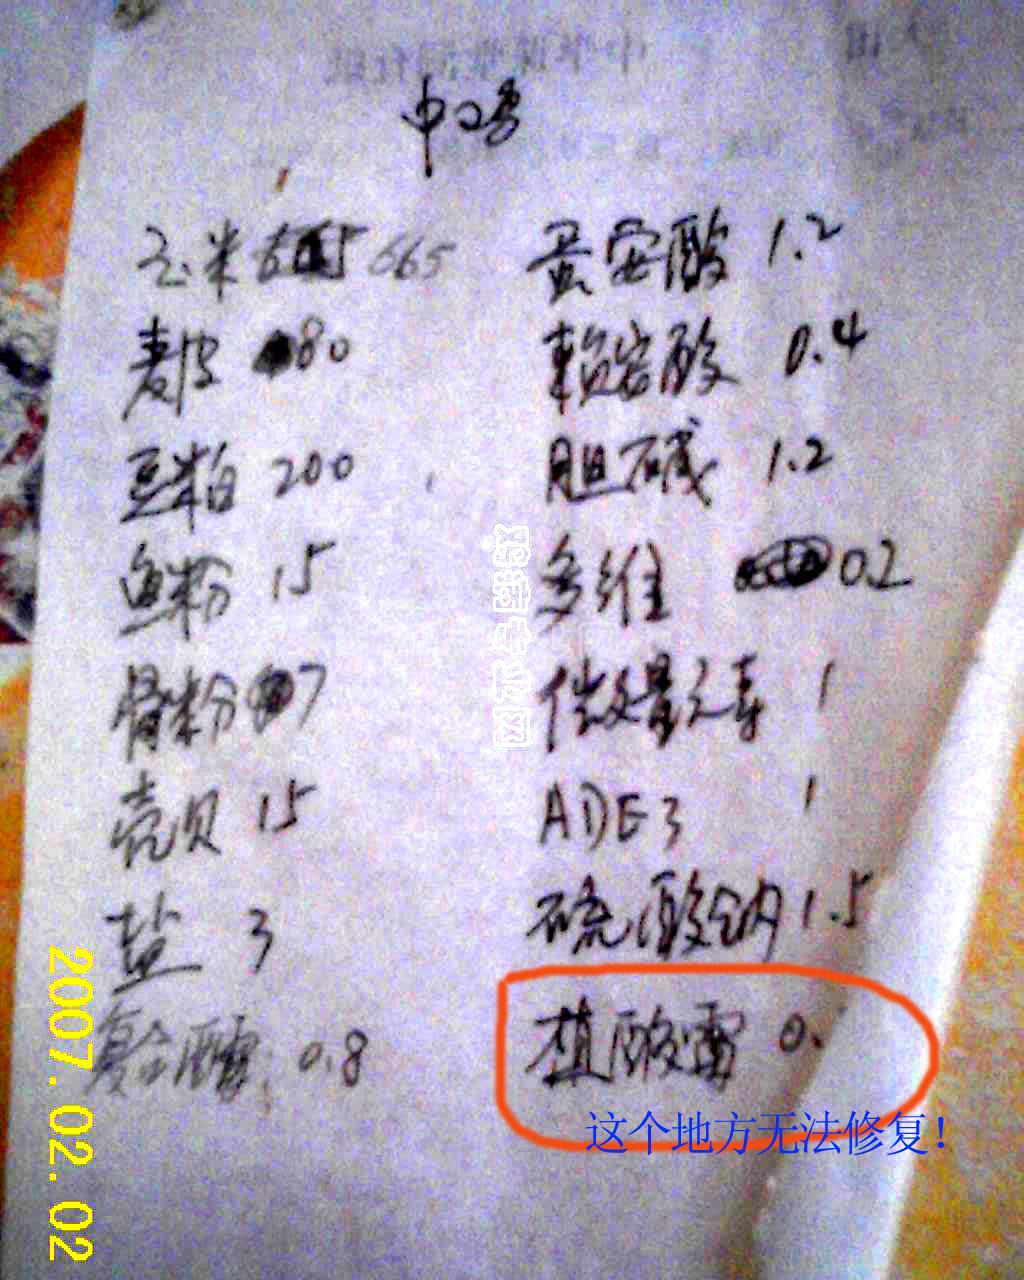 中2号
玉米 665
麦皮 80
豆粕 200
鱼粉 15
骨粉 7
壳贝 15
盐 3
复合酶 0.8
蛋安酸 1.2
赖安酸 0.4
胆碱 1.2
多维 0.2
量元素 1
ADE3 1
硫酸钠 1.5
植酸 0.
这个地方无法修复！
2007.02.02